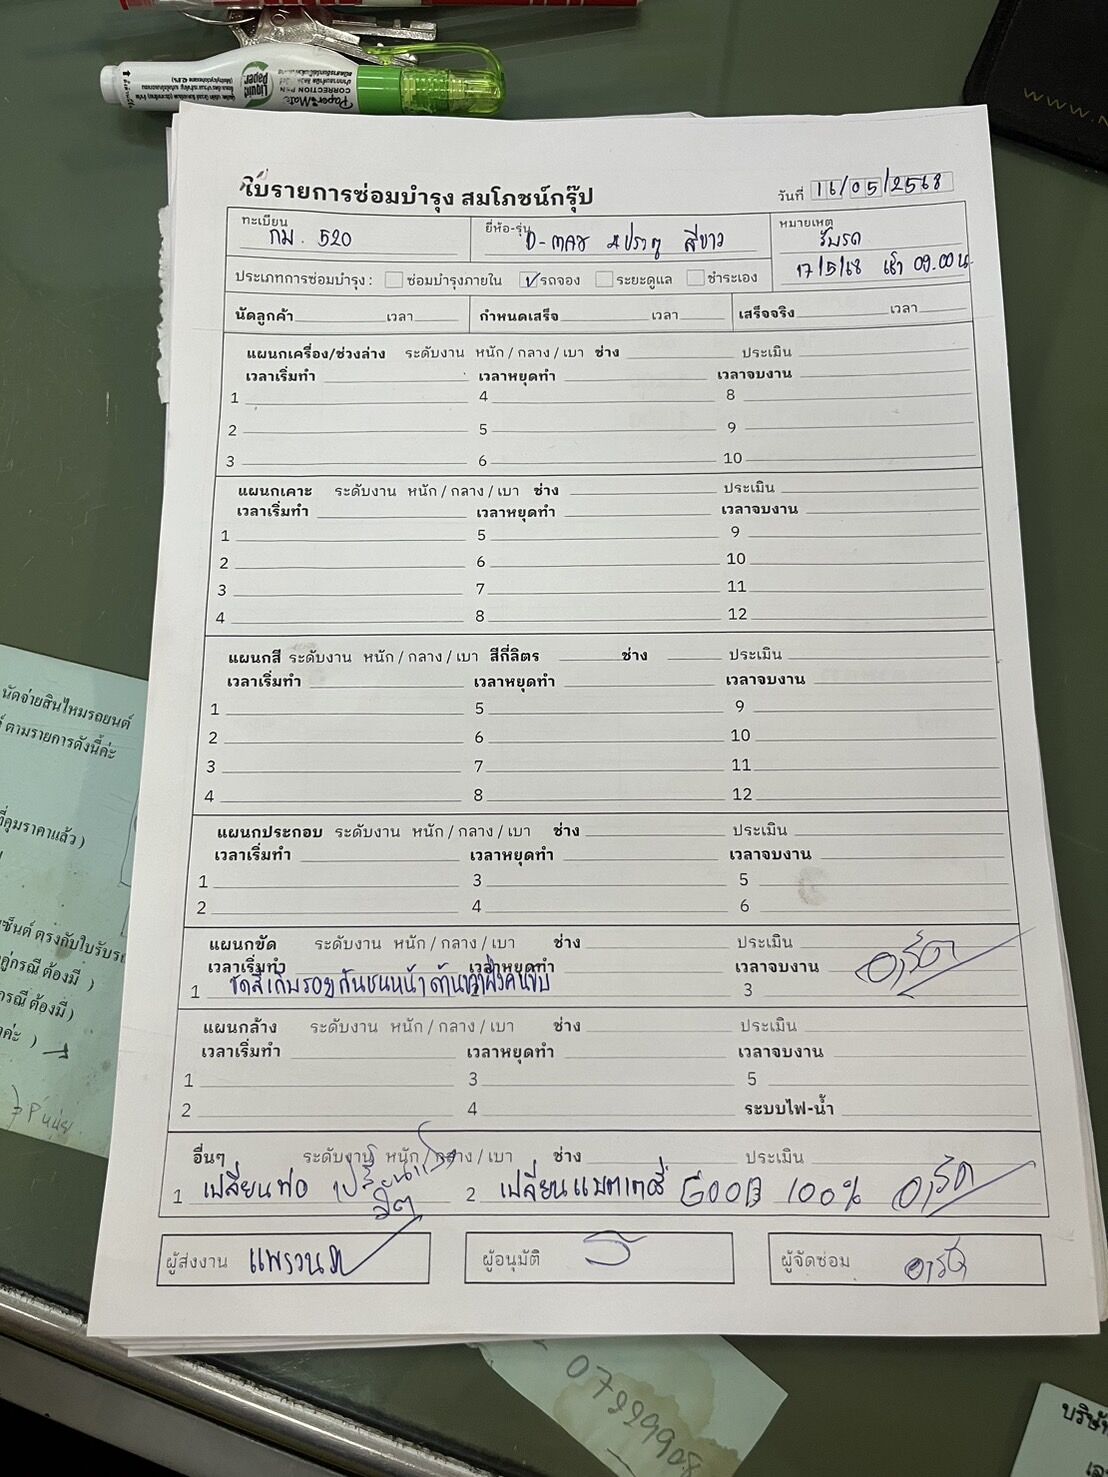 Paper Mate
CORRECTION PEN
Liquid Paper
WWW.
ใบรายการซ่อมบำรุง สมโภชน์กรุ๊ป
วันที่ 16/05/2568
ทะเบียน กม. 520
ยี่ห้อ-รุ่น D-max 4ประตู สีขาว
หมายเหตุ รับรถ
17/5/68 เช้า 09.00 น.
ประเภทการซ่อมบำรุง : ซ่อมบำรุงภายใน ✓ รถจอง ระยะดูแล ชำระเอง
นัดลูกค้า เวลา กำหนดเสร็จ เวลา เสร็จจริง เวลา
แผนกเครื่อง/ช่วงล่าง ระดับงาน หนัก / กลาง / เบา ช่าง ประเมิน
เวลาเริ่มทำ เวลาหยุดทำ เวลาจบงาน
1 4 8
2 5 9
3 6 10
แผนกเคาะ ระดับงาน หนัก / กลาง / เบา ช่าง ประเมิน
เวลาเริ่มทำ เวลาหยุดทำ เวลาจบงาน
1 5 9
2 6 10
3 7 11
4 8 12
แผนกสี ระดับงาน หนัก / กลาง / เบา สีกี่ลิตร ช่าง ประเมิน
เวลาเริ่มทำ เวลาหยุดทำ เวลาจบงาน
1 5 9
2 6 10
3 7 11
4 8 12
แผนกประกอบ ระดับงาน หนัก / กลาง / เบา ช่าง ประเมิน
เวลาเริ่มทำ เวลาหยุดทำ เวลาจบงาน
1 3 5
2 4 6
แผนกขัด ระดับงาน หนัก / กลาง / เบา ช่าง ประเมิน
เวลาเริ่มทำ เวลาหยุดทำ เวลาจบงาน
1 ขัดสีเก็บรอยกันชนหน้าด้านขวาฝั่งคนขับ 3
แผนกล้าง ระดับงาน หนัก / กลาง / เบา ช่าง ประเมิน
เวลาเริ่มทำ เวลาหยุดทำ เวลาจบงาน
1 3 5
2 4 ระบบไฟ-น้ำ
อื่นๆ ระดับงาน หนัก / กลาง / เบา ช่าง ประเมิน
1 เปลี่ยนท่อ เปลี่ยนแล้ว 2 เปลี่ยนแบตเตอรี่ GOOD 100%
ผู้ส่งงาน ผู้อนุมัติ ผู้จัดซ่อม
นัดจ่ายสินไหมรถยนต์
ตามรายการดังนี้ค่ะ
ที่คุมราคาแล้ว )
ตรงกับใบรับรถ
คู่กรณี ต้องมี )
กรณี ต้องมี)
ค่ะ )
07999908
บริษัท